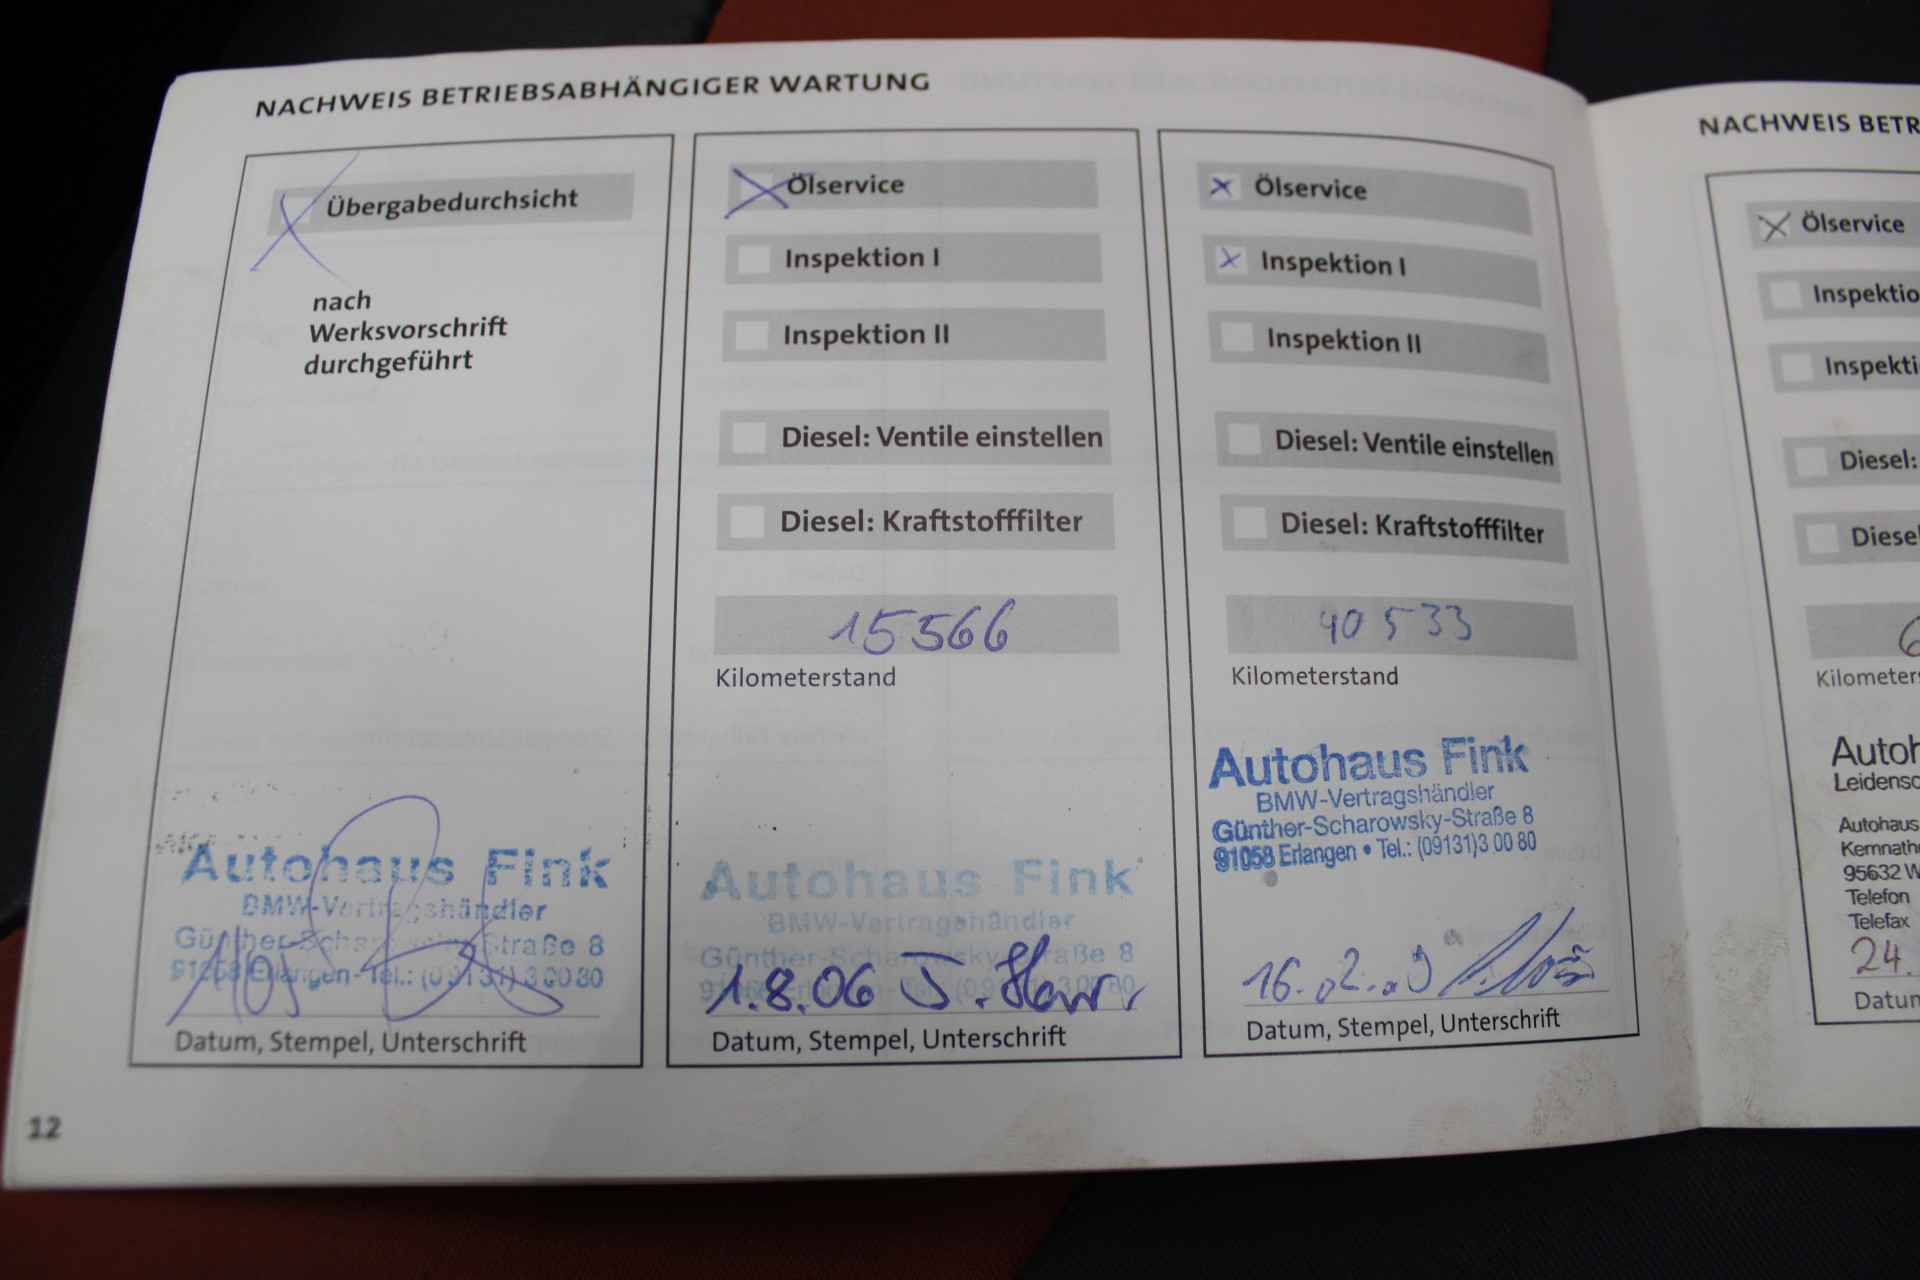 NACHWEIS BETRIEBSABHÄNGIGER WARTUNG
Übergabedurchsicht
nach
Werksvorschrift
durchgeführt
Autohaus Fink
BMW-Vertragshändler
Günther-Scharowsky-Straße 8
91058 Erlangen - Tel.: (09131) 3 00 80
Datum, Stempel, Unterschrift
Ölservice
Inspektion I
Inspektion II
Diesel: Ventile einstellen
Diesel: Kraftstofffilter
15566
Kilometerstand
Autohaus Fink
BMW-Vertragshändler
Günther-Scharowsky-Straße 8
Erlangen Tel.: (09131) 3 00 80
1.8.06
Datum, Stempel, Unterschrift
Ölservice
Inspektion I
Inspektion II
Diesel: Ventile einstellen
Diesel: Kraftstofffilter
40533
Kilometerstand
Autohaus Fink
BMW-Vertragshändler
Günther-Scharowsky-Straße 8
91058 Erlangen • Tel.: (09131)3 00 80
16.02.09
Datum, Stempel, Unterschrift
12
NACHWEIS BETR
Ölservice
Inspektio
Inspekti
Diesel:
Diesel
6
Kilometers
Autoh
Leidensc
Autohaus
Kemnathe
95632 W
Telefon
Telefax
24.
Datum